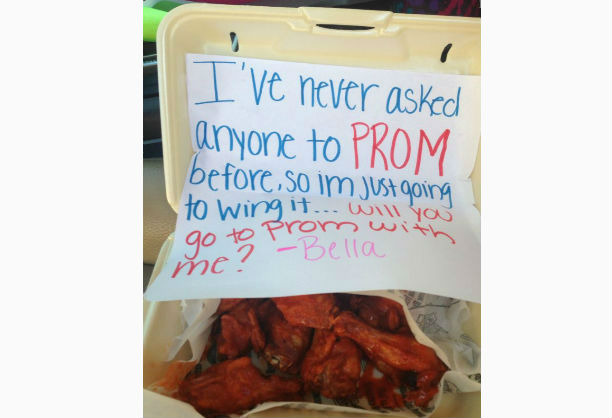 I've never asked
anyone to PROM
before, so im just going
to wing it... will you
go to Prom with
me? -Bella